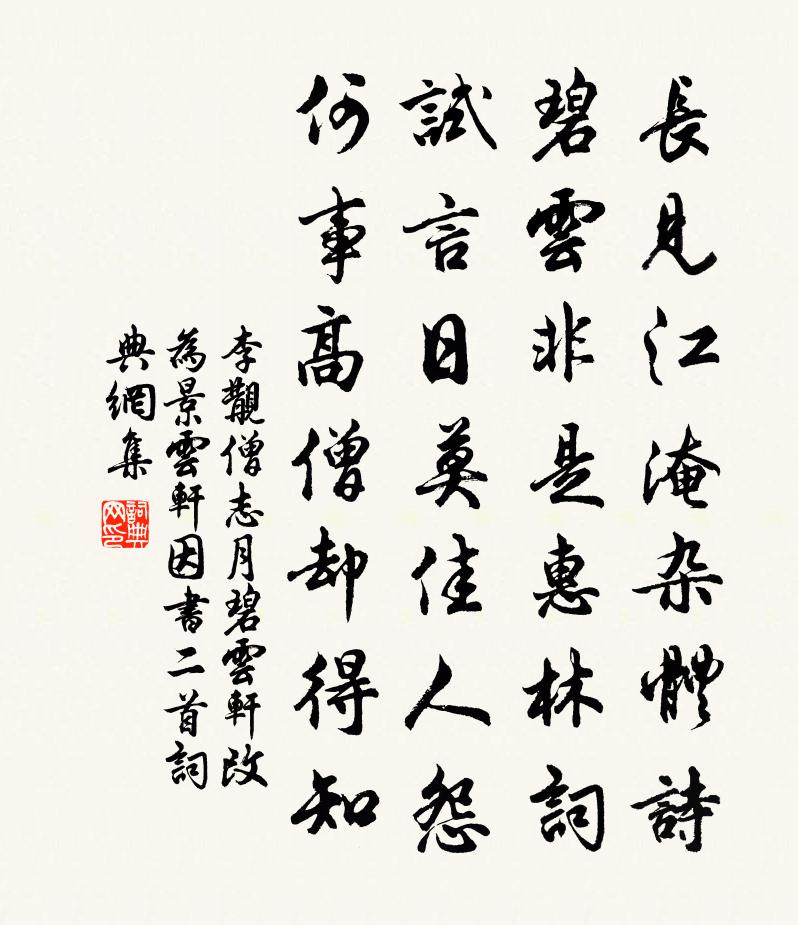 長見江淹杂體詩
碧雲非是惠林詞
試言日莫佳人怨
何事高僧却得知
李觀僧志月碧雲軒改
為景雲軒因書二首詞
典網集
詞典
网印